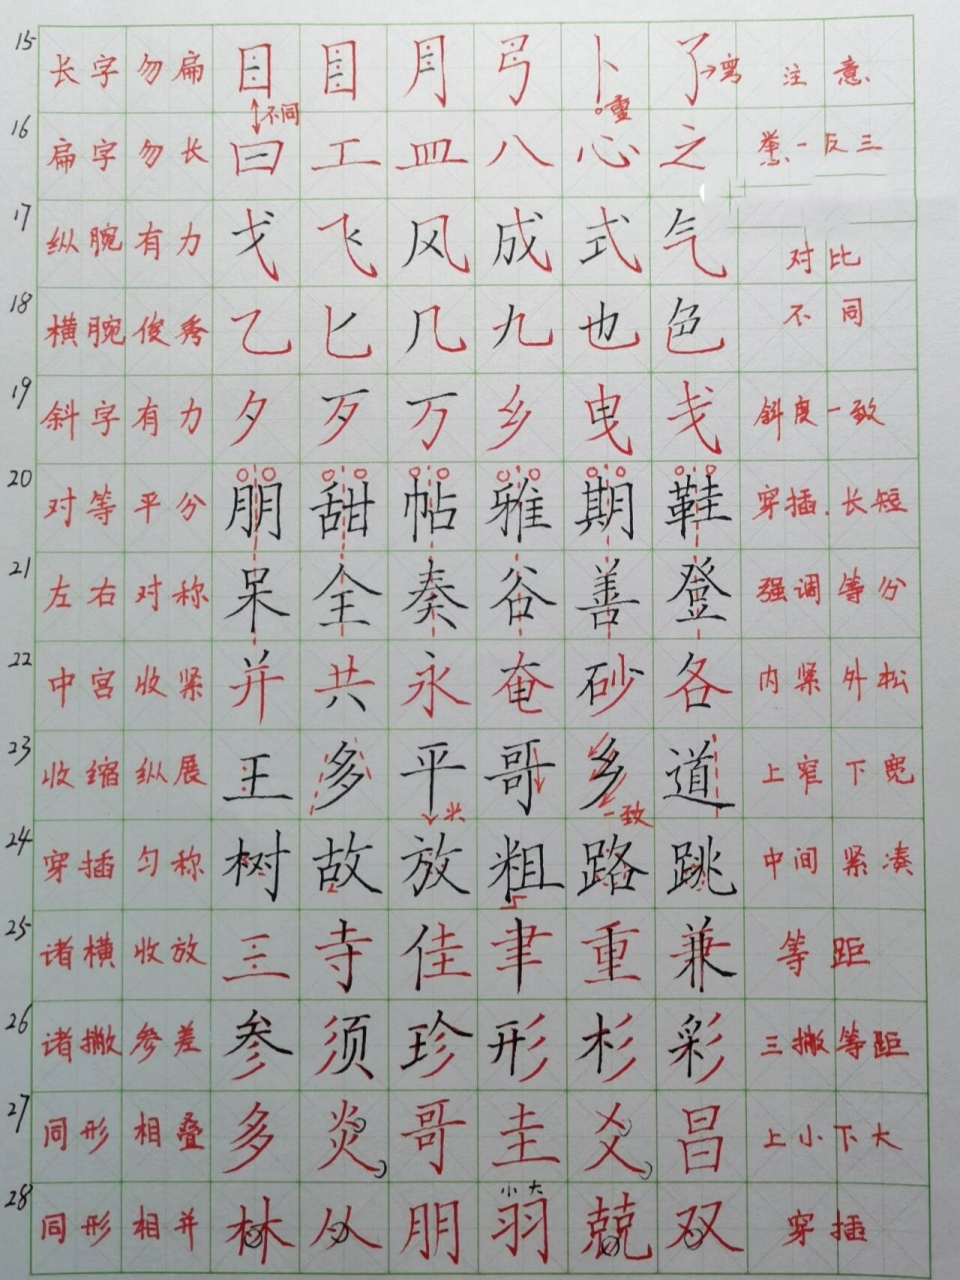 15 长字勿扁 目 目 月 弓 卜 了 弯 注意
不同 重
16 扁字勿长 曰 工 皿 八 心 之 举一反三
17 纵腕有力 弋 飞 风 成 式 气 对比
18 横腕俊秀 乙 匕 几 九 也 色 不同
19 斜字有力 夕 歹 万 乡 曳 戋 斜度一致
20 对等平分 朋 甜 帖 雅 期 鞋 穿插、长短
21 左右对称 呆 全 奏 谷 善 登 强调等分
22 中宫收紧 并 共 永 奄 砂 各 内紧外松
23 收缩纵展 王 多 平 哥 乡 道 上窄下宽
一致
24 穿插匀称 树 故 放 粗 路 跳 中间紧凑
25 诸横收放 三 寺 佳 聿 重 兼 等距
26 诸撇参差 参 须 珍 形 杉 彩 三撇等距
27 同形相叠 多 炎 哥 圭 爻 昌 上小下大
小大
28 同形相并 林 从 朋 羽 兢 双 穿插